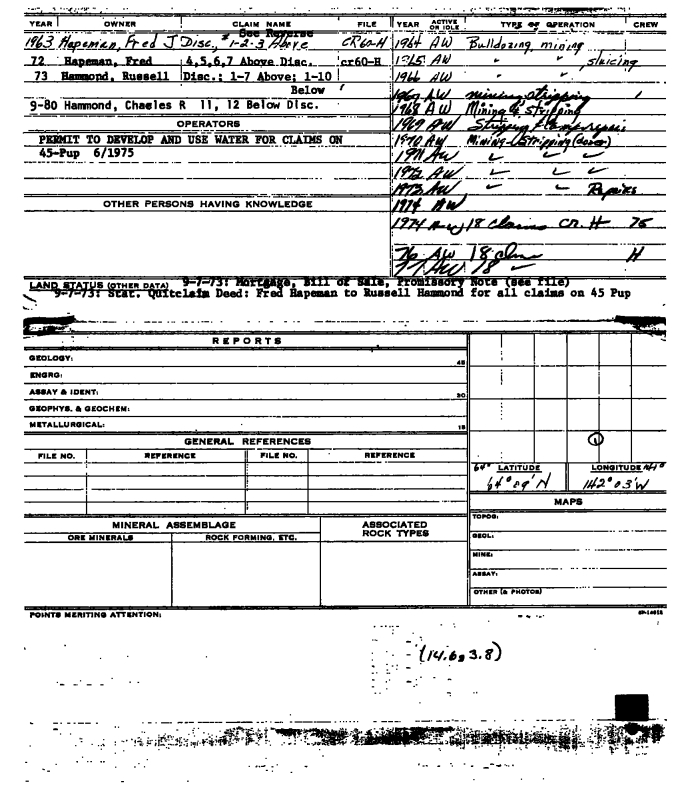 YEAR OWNER CLAIM NAME FILE YEAR ACTIVE OR IDLE TYPE OF OPERATION CREW
See Reverse
1963 Hapeman, Fred J Disc, # 1-2-3 Above CR60-H 1964 AW Bulldozing mining
72 Hapeman, Fred 4,5,6,7 Above Disc. cr60-H 1965 AW " " sluicing
73 Hammond, Russell Disc.: 1-7 Above; 1-10 1966 AW " "
Below 1967 AW mining stripping
9-80 Hammond, Chasles R 11, 12 Below Disc. 1968 AW Mining & stripping
OPERATORS 1969 AW
PERMIT TO DEVELOP AND USE WATER FOR CLAIMS ON 1970 AW Mining-Stripping
45-Pup 6/1975 1971 AW
1972 AW
1973 AW Repairs
OTHER PERSONS HAVING KNOWLEDGE 1974 AW
1974 AW 18 claims CR. H 75
76 AW 18 H
77 AW 18
LAND STATUS (OTHER DATA) 9-7-73: Mortgage, Bill of Sale, Promissory Note (see file)
9-7-73: Stat. Quitclaim Deed: Fred Hapeman to Russell Hammond for all claims on 45 Pup
REPORTS
GEOLOGY:
45
ENGRG:
ASSAY & IDENT:
30
GEOPHYS. & GEOCHEM:
METALLURGICAL:
15
GENERAL REFERENCES
1
FILE NO. REFERENCE FILE NO. REFERENCE
64° LATITUDE LONGITUDE 141°
64°09'N 142°03'W
MAPS
MINERAL ASSEMBLAGE ASSOCIATED ROCK TYPES TOPOG:
ORE MINERALS ROCK FORMING, ETC. GEOL:
MINE:
ASSAY:
OTHER (& PHOTOS)
POINTS MERITING ATTENTION:
(14.6, 3.8)